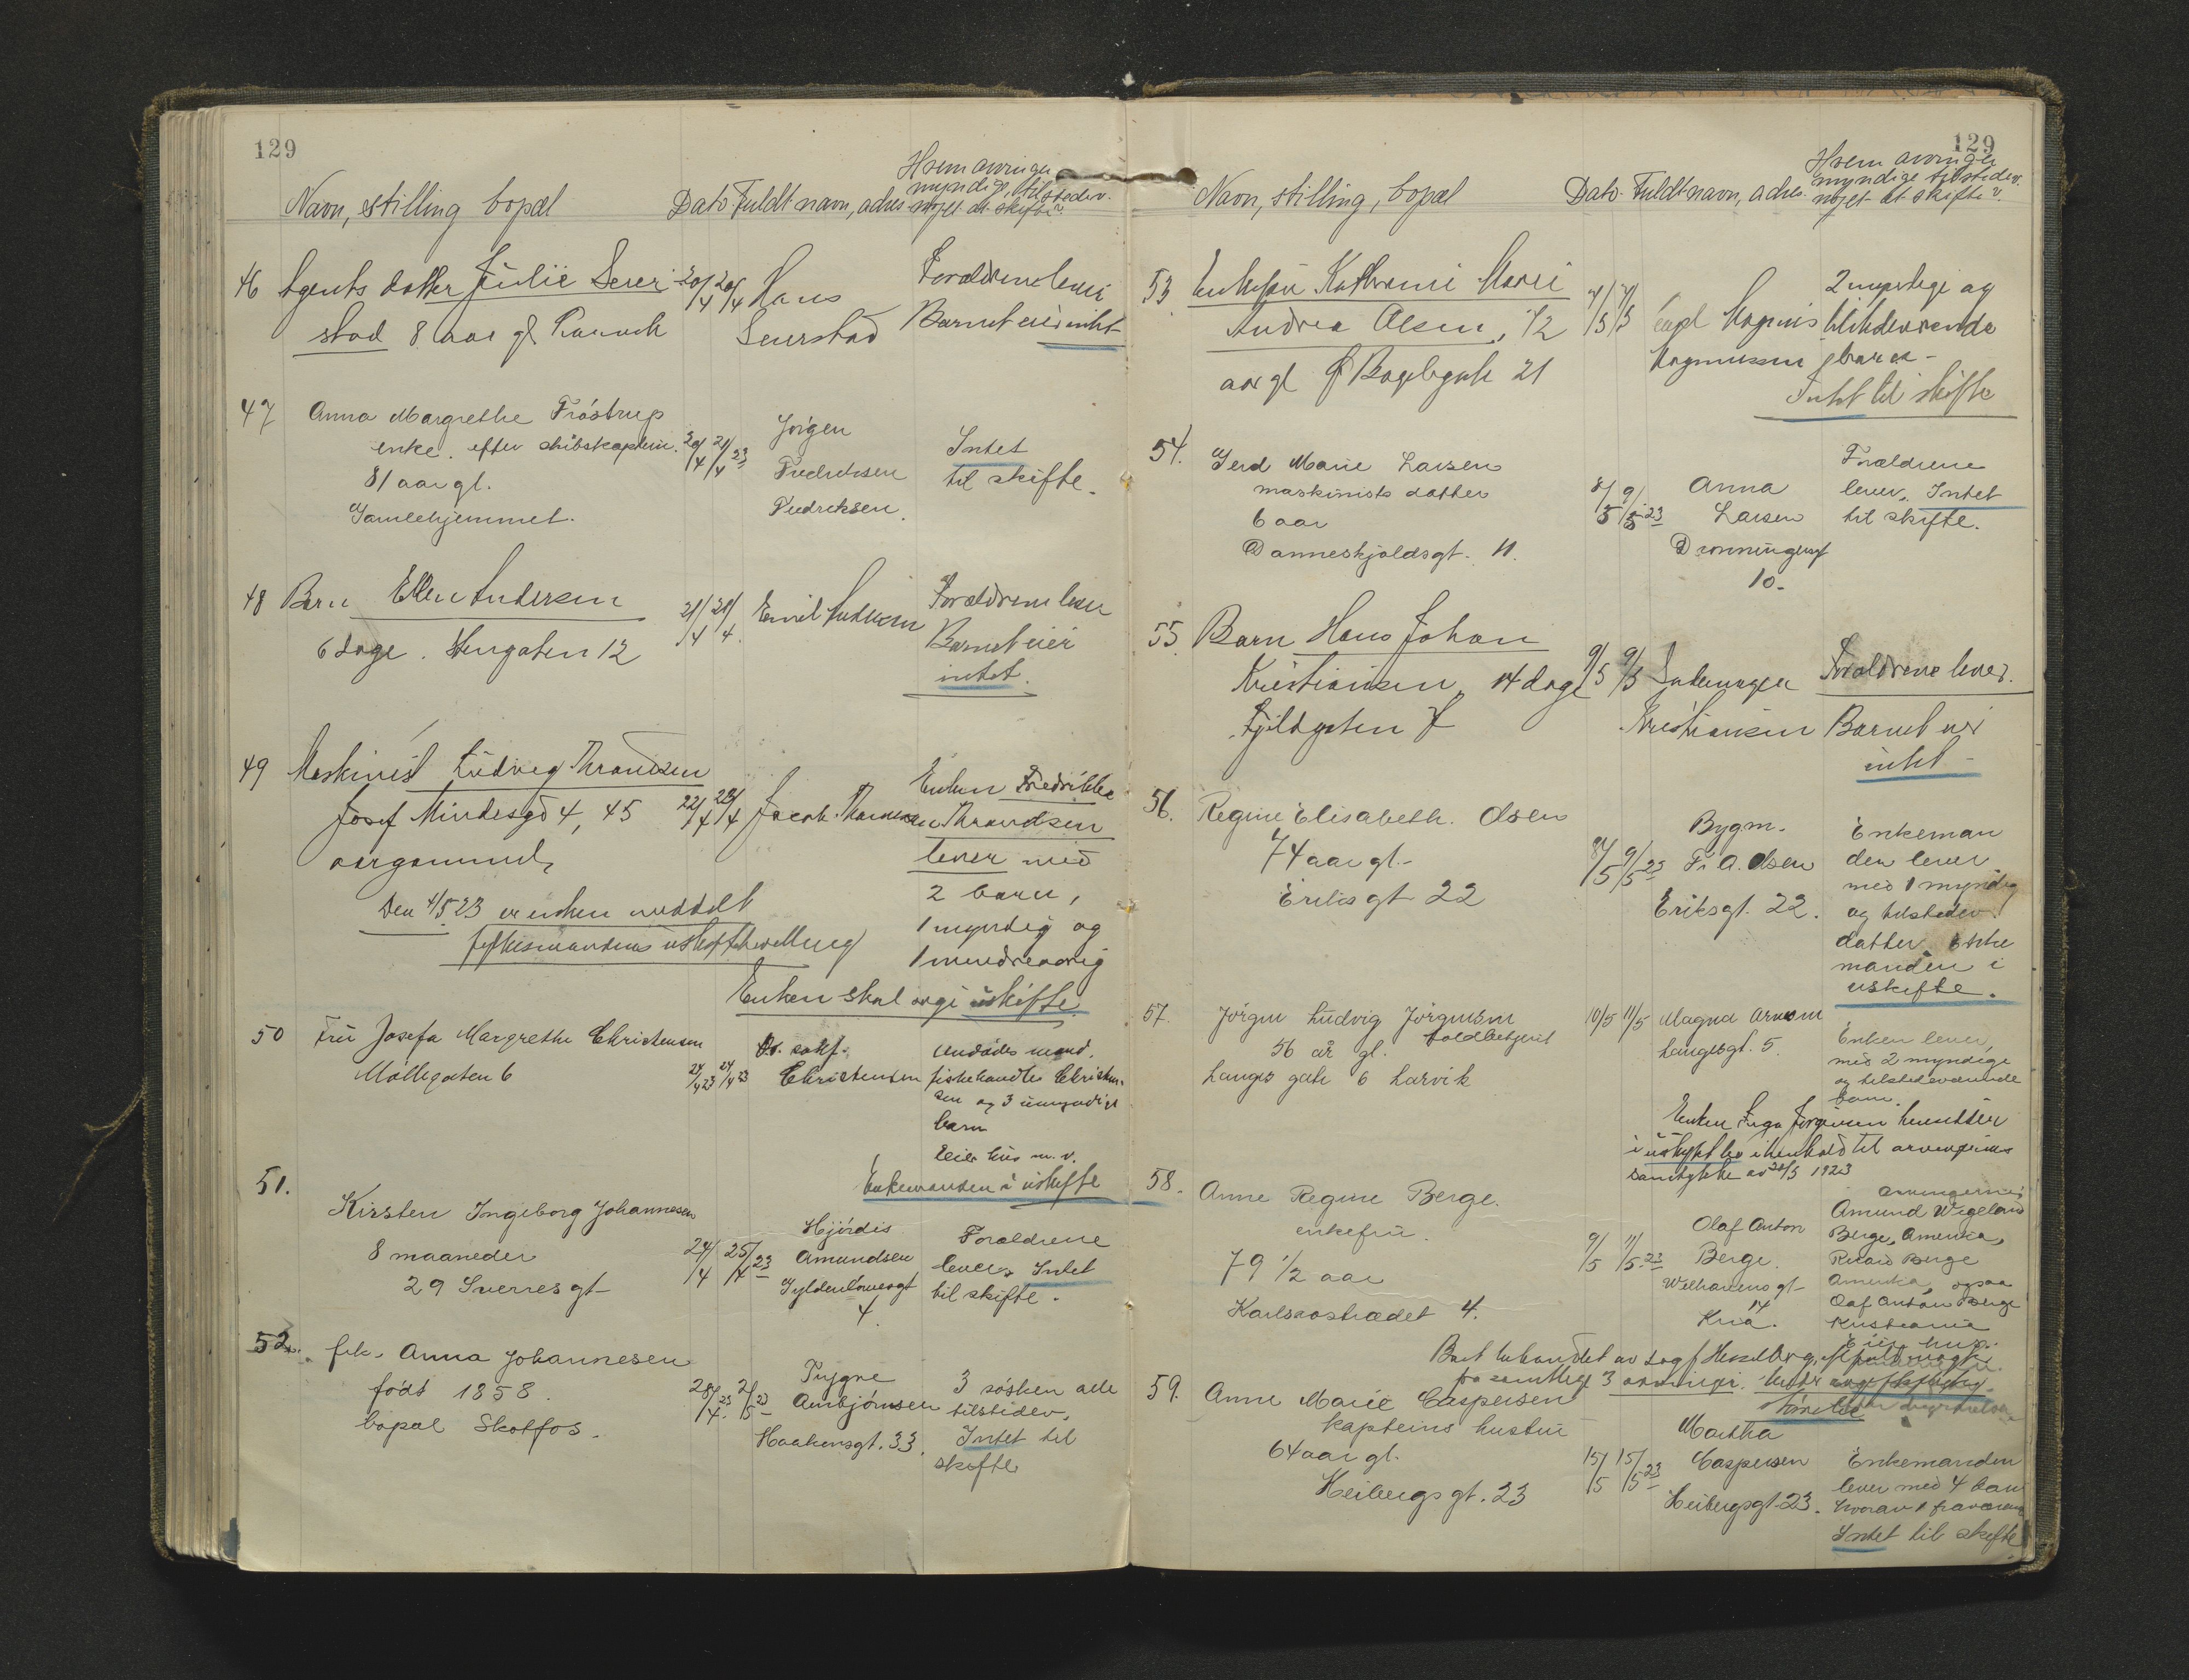 129
Navn, stilling bopæl
Dato Fuldt navn, adres
Hvem arvinger
myndige, tilstedev.
noget at skifte?
46 Agents datter Julie Seier
stad 8 aar gl
20/4 20/4 Hans
Seierstad
Forældrene lever
Barnet eier intet
47 Anna Margrethe Frøstrup
enke efter skibskaptein
81 aar gl.
Gamlehjemmet.
20/4 21/4 23
Jørgen
Fredriksen
Fredriksen
Intet
til skifte.
48 Barn Ellen Andersen
6 dage. Stengaten 12
21/4 21/4 Emil Andersen
Forældrene lever
Barnet eier
intet.
49 Maskinist Ludvig Thrandsen
Josef Mindesgd 4, 45
aar gammel,
Den 4/5 23 er enken meddelt
fylkesmandens uskiftebevilling
22/4 23/4 Jacob
Enken Fredrikke
Thrandsen
lever med
2 barn,
1 myndig og
1 mindreaarig
Enken skal søge uskifte
50 Fru Josefa Margrethe Christensen
Møllegaten 6
24/4 23 24/4 23
Ov. sakf.
Christensen
Avdødes mand,
fiskehandler Christen-
sen og 3 umyndige
barn
Eier hus m. v.
Enkemanden i uskifte
51. Kirsten Ingeborg Johannesen
8 maaneder
29 Sverresgt
24/4 25/4 23
Hjørdis
Amundsen
Gyldenløvesgt
4.
Forældrene
lever, Intet
til skifte.
52. frk. Anna Johannesen
født 1858.
bopæl Skotfos.
28/4 23 2/5 23
Trygve
Arnbjørnsen
Haakonsgt. 33.
3 søsken alle
tilstedev,
Intet til
skifte
129
Navn, stilling, bopæl
Dato Fuldt navn, adres.
Hvem arvinger
myndige tilstedev.
noget at skifte?
53 Enkefru Kathrine Marie
Andrea Olsen, 72
aar gl Bøgelsgate 21
7/5 7/5 Magnus
Magnussen
2 myndige og
tilstedeværende
barn -
Intet til skifte
54. Gerd Marie Larsen
maskinists datter
6 aar
Danneskjoldsgt. 11.
8/5 9/5 23
Anna
Larsen
Dronningensgt
10.
Forældrene
lever, Intet
til skifte.
55. Barn Hans Johan
Kristiansen, 14 dage
Fjeldgaten 7
9/5 9/5
Kristiansen
Forældrene lever.
Barnet eier
intet -
56. Regine Elisabeth Olsen
74 aar gl.
Eriksgt 22
8/5 9/5 23
Bygm.
Fr. A. Olsen
Eriksgt. 22.
Enkeman
den lever
med 1 myndig
og tilstedev.
datter. Enke
manden i
uskifte.
57. Jørgen Ludvig Jørgensen
56 år gl. toldbetjent
Langes gate 6 Larvik
10/5 11/5 Magna Arnesen
Langesgt. 5.
Enken lever,
med 2 myndige
og tilstedeværende
barn.
Enken Inga Jørgensen hensitter
i uskiftet bo i henhold til arvingernes
samtykke av 20/5 1923
58. Anne Regine Berge.
enkefru.
79 1/2 aar
Karlsrostrædet 4.
9/5 11/5 23
Olaf Anton
Berge.
Welhavens gt
14
Kria.
arvingerne:
Amund Wegeland
Berge, Amerika,
Rikard Berge
Amerika, ogsaa
Olaf Anton Berge
Kristiania
Eier hus.
Boet behandlet av sagf Herzberg, fuldmagt
fra samtlige 3 arvinger.
59. Anne Marie Caspersen
kapteins hustru
64 aar gl.
Heibergs gt. 23
15/5 15/5 23
Martha
Caspersen
Heibergsgt 23.
Enkemanden
lever med 4 barn
hvorav 1 fraværende
Intet til skifte